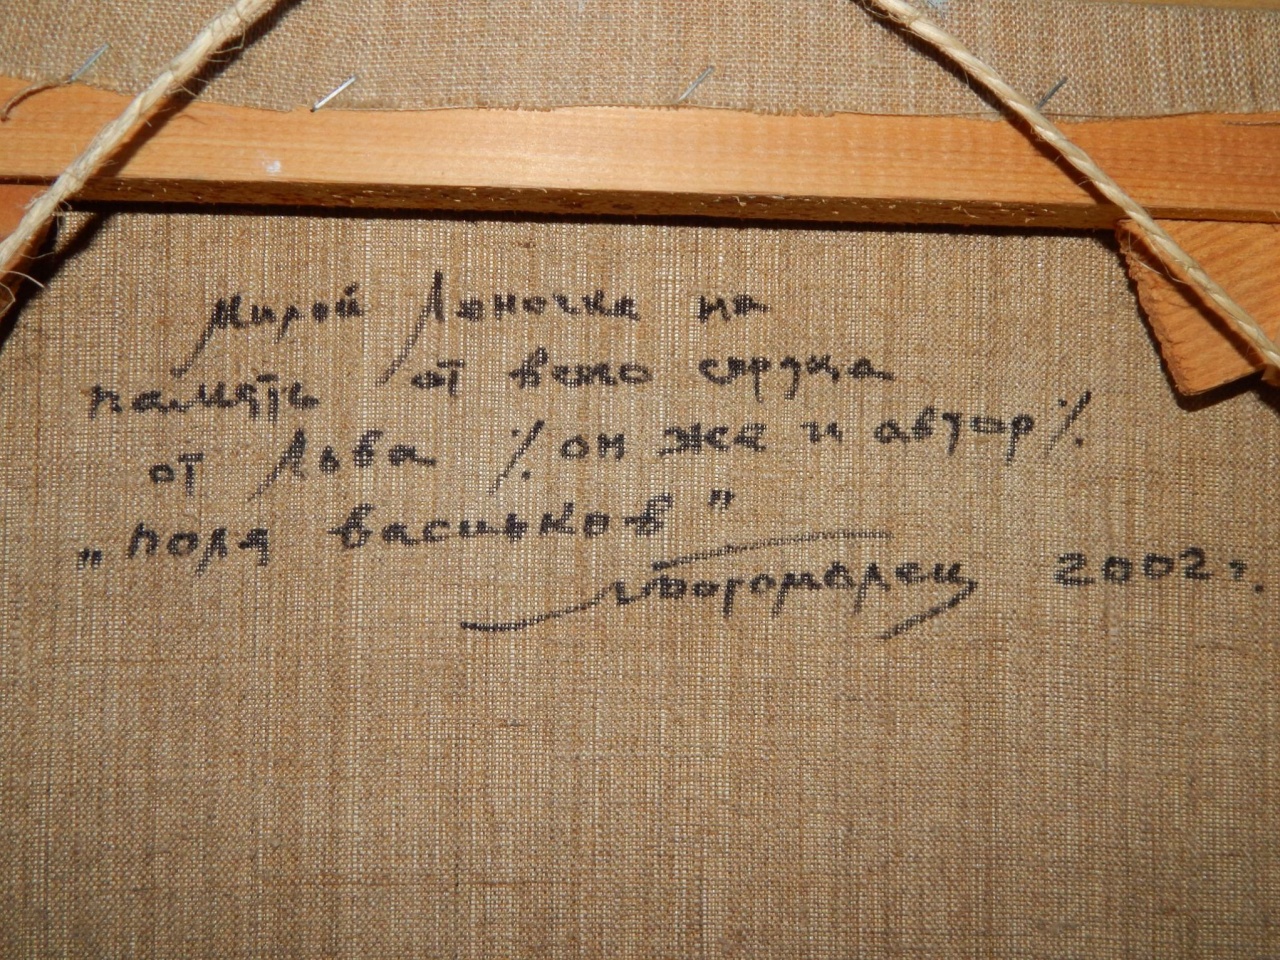 Милой Леночке на
память от всего сердца
от Льва /. он же и автор /.
„поля васильков"
Богомолец 2002 г.